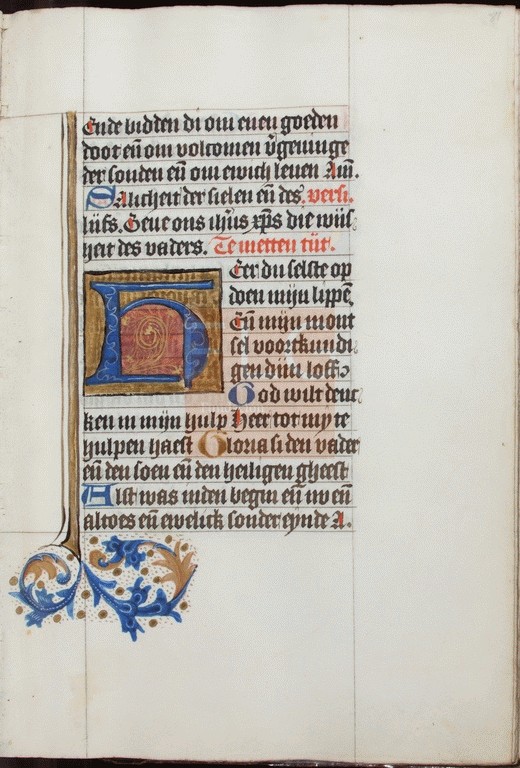 Ende bidden di om enen goeden
doot en̄ om volcomen v̄geuinge
der souden en̄ om ewich leuen Am̄.
Salicheit der sielen en̄ des versi.
lijfs. Geue ons ih̄us xp̄s die wijs
heit des vaders. Te metten tijt.
Heer du selste op
doen mijn lippē
En̄ mijn mont
sel voortkundi
gen dijn loff
God wilt denc
ken in mijn hulp Heer tot my te
hulpen haest Gloria si den vader
en̄ den soen en̄ den heiligen gheest
Alst was inden begin en̄ nv en̄
altoes en̄ ewelick sonder eynde A.